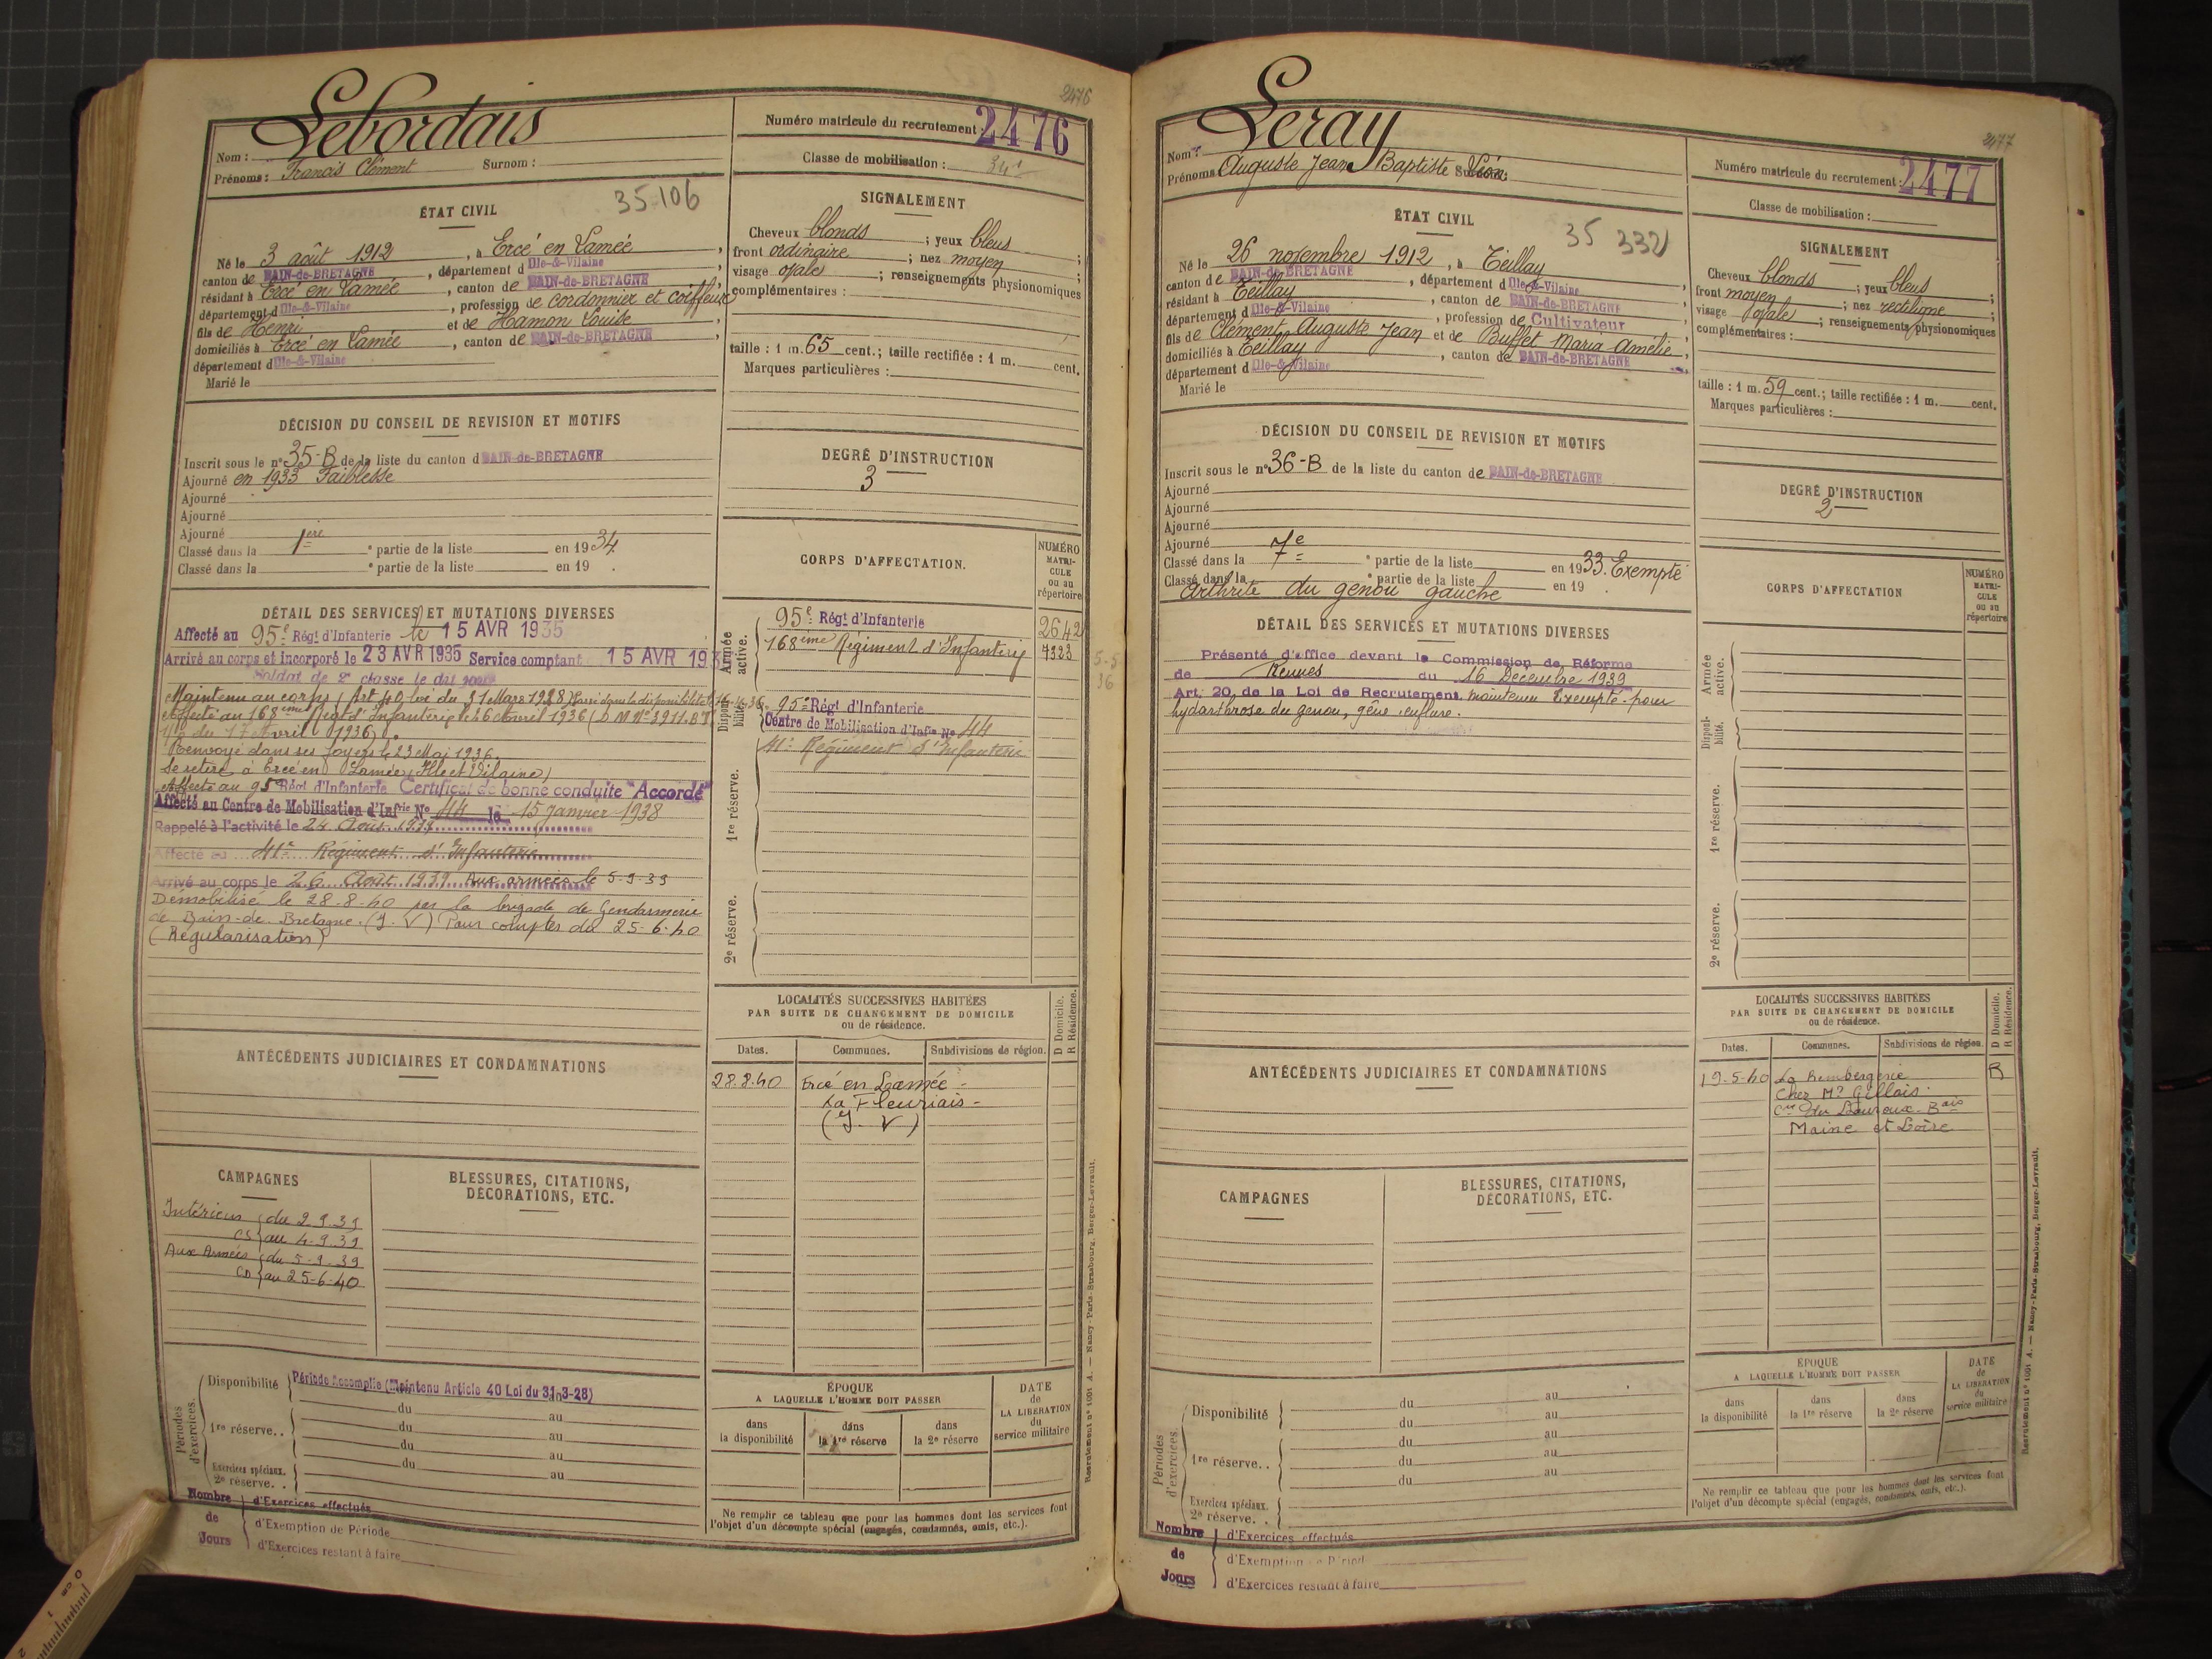 2476
Lebordais
Nom :
Prénoms : Francis Clément Surnom :
Numéro matricule du recrutement : 2476
Classe de mobilisation :
35.106
ÉTAT CIVIL
Né le 3 août 1912, à Ercé en Lamée,
canton de BAIN-de-BRETAGNE, département d Ille-&-Vilaine,
résidant à Ercé en Lamée, canton de BAIN-de-BRETAGNE,
département d Ille-&-Vilaine, profession de cordonnier et coiffeur,
fils de Henri et de Hamon Louise,
domiciliés à Ercé en Lamée, canton de BAIN-de-BRETAGNE,
département d Ille-&-Vilaine
Marié le
SIGNALEMENT
Cheveux blonds ; yeux bleus ;
front ordinaire ; nez moyen ;
visage ovale ; renseignements physionomiques
complémentaires :
taille : 1 m. 65 cent.; taille rectifiée : 1 m. cent.
Marques particulières :
DÉCISION DU CONSEIL DE REVISION ET MOTIFS
Inscrit sous le n° 35-B de la liste du canton d BAIN-de-BRETAGNE
Ajourné en 1933 Faiblesse
Ajourné
Ajourné
Ajourné
Classé dans la 1ère partie de la liste en 1934
Classé dans la e partie de la liste en 19 .
DEGRÉ D'INSTRUCTION
3
DÉTAIL DES SERVICES ET MUTATIONS DIVERSES
Affecté au 95e Régt d'Infanterie le 15 AVR 1935
Arrivé au corps et incorporé le 23 AVR 1935 Service comptant 15 AVR 193
Soldat de 2e classe le dit jour
Maintenu au corps (Art 40 loi du 31 Mars 1928) Passé dans la disponibilité le 15-4-36
Affecté au 168ème Régt d'Infanterie le 26 avril 1936 (D M N° 3911.BT
1/2 du 17 Avril 1936).
Renvoyé dans ses foyers le 23 Mai 1936.
Se retire à Ercé en Lamée (Ille et Vilaine)
Affecté au 95e Régt d'Infanterie Certificat de bonne conduite "Accordé"
Affecté au Centre de Mobilisation d'Infrie N° 44 le 15 Janvier 1938
Rappelé à l'activité le 24 Août 1939
Affecté au 41e Régiment d'Infanterie
Arrivé au corps le 26 Août 1939 Aux armées le 5-9-39
Démobilisé le 28-8-40 par la brigade de Gendarmerie
de Bain-de-Bretagne. (I. V) Pour compter du 25-6-40
(Régularisation)
CORPS D'AFFECTATION.
NUMÉRO MATRICULE ou au répertoire
Armée active.
95e Régt d'Infanterie 2642
168ème Régiment d'Infanterie 7323
5-5
36
Disponibilité.
95e Régt d'Infanterie
Centre de Mobilisation d'Infie N° 44
1re réserve.
41e Régiment d'Infanterie
2e réserve.
LOCALITÉS SUCCESSIVES HABITÉES
PAR SUITE DE CHANGEMENT DE DOMICILE
ou de résidence.
D Domicile. R Résidence.
Dates. Communes. Subdivisions de région.
28.8.40 Ercé en Lamée -
La Fleuriais -
(I. V)
ANTÉCÉDENTS JUDICIAIRES ET CONDAMNATIONS
CAMPAGNES
BLESSURES, CITATIONS,
DÉCORATIONS, ETC.
Intérieur du 2.9.39
CS au 4-9-39
Aux Armées du 5-9-39
CD au 25-6-40
Périodes d'exercices.
Disponibilité Période Accomplie (Maintenu Article 40 Loi du 31-3-28)
du au
1re réserve.. du au
du au
du au
Exercices spéciaux.
2e réserve. .
Nombre de Jours
d'Exercices effectués
d'Exemption de Période
d'Exercices restant à faire
ÉPOQUE
A LAQUELLE L'HOMME DOIT PASSER
dans la disponibilité
dans la 1re réserve
dans la 2e réserve
DATE de LA LIBÉRATION du service militaire
Ne remplir ce tableau que pour les hommes dont les services font
l'objet d'un décompte spécial (engagés, condamnés, omis, etc.).
Recrutement n° 1001 A. — Nancy-Paris-Strasbourg, Berger-Levrault.
2477
Leray
Nom :
Prénoms Auguste Jean Baptiste Léon
Numéro matricule du recrutement : 2477
Classe de mobilisation :
35 332
ÉTAT CIVIL
Né le 26 novembre 1912, à Teillay
canton de BAIN-de-BRETAGNE, département d Ille-&-Vilaine,
résidant à Teillay, canton de BAIN-de-BRETAGNE
département d Ille-&-Vilaine, profession de Cultivateur
fils de Clément Auguste Jean et de Buffet Maria Amélie,
domiciliés à Teillay, canton de BAIN-de-BRETAGNE
département d Ille-&-Vilaine
Marié le
SIGNALEMENT
Cheveux blonds ; yeux bleus ;
front moyen ; nez rectiligne ;
visage ovale ; renseignements physionomiques
complémentaires :
taille : 1 m. 59 cent.; taille rectifiée : 1 m. cent.
Marques particulières :
DÉCISION DU CONSEIL DE REVISION ET MOTIFS
Inscrit sous le n° 36-B de la liste du canton de BAIN-de-BRETAGNE
Ajourné
Ajourné
Ajourné
Ajourné
Classé dans la 7e partie de la liste en 1933. Exempté
Classé dans la e partie de la liste en 19 .
Arthrite du genou gauche
DEGRÉ D'INSTRUCTION
2
DÉTAIL DES SERVICES ET MUTATIONS DIVERSES
Présenté d'office devant la Commission de Réforme
de Rennes du 16 Décembre 1939
Art. 20 de la Loi de Recrutement. maintenu Exempté pour
hydarthrose du genou, gêne enflure.
CORPS D'AFFECTATION
NUMÉRO MATRICULE ou au répertoire
Armée active.
Disponibilité.
1re réserve.
2e réserve.
LOCALITÉS SUCCESSIVES HABITÉES
PAR SUITE DE CHANGEMENT DE DOMICILE
ou de résidence.
D Domicile. R Résidence.
Dates. Communes. Subdivisions de région.
19-5-40 La Rembergerie R
Chez Mr Gillois
Cne du Louroux-Bais
Maine et Loire
ANTÉCÉDENTS JUDICIAIRES ET CONDAMNATIONS
CAMPAGNES
BLESSURES, CITATIONS,
DÉCORATIONS, ETC.
Périodes d'exercices.
Disponibilité du au
du au
1re réserve.. du au
du au
du au
Exercices spéciaux.
2e réserve. .
Nombre de Jours
d'Exercices effectués
d'Exemption de Périod
d'Exercices restant à faire
ÉPOQUE
A LAQUELLE L'HOMME DOIT PASSER
dans la disponibilité
dans la 1re réserve
dans la 2e réserve
DATE de LA LIBÉRATION du service militaire
Ne remplir ce tableau que pour les hommes dont les services font
l'objet d'un décompte spécial (engagés, condamnés, omis, etc.).
Recrutement n° 1001 A. — Nancy-Paris-Strasbourg, Berger-Levrault.
0 cm 1 2